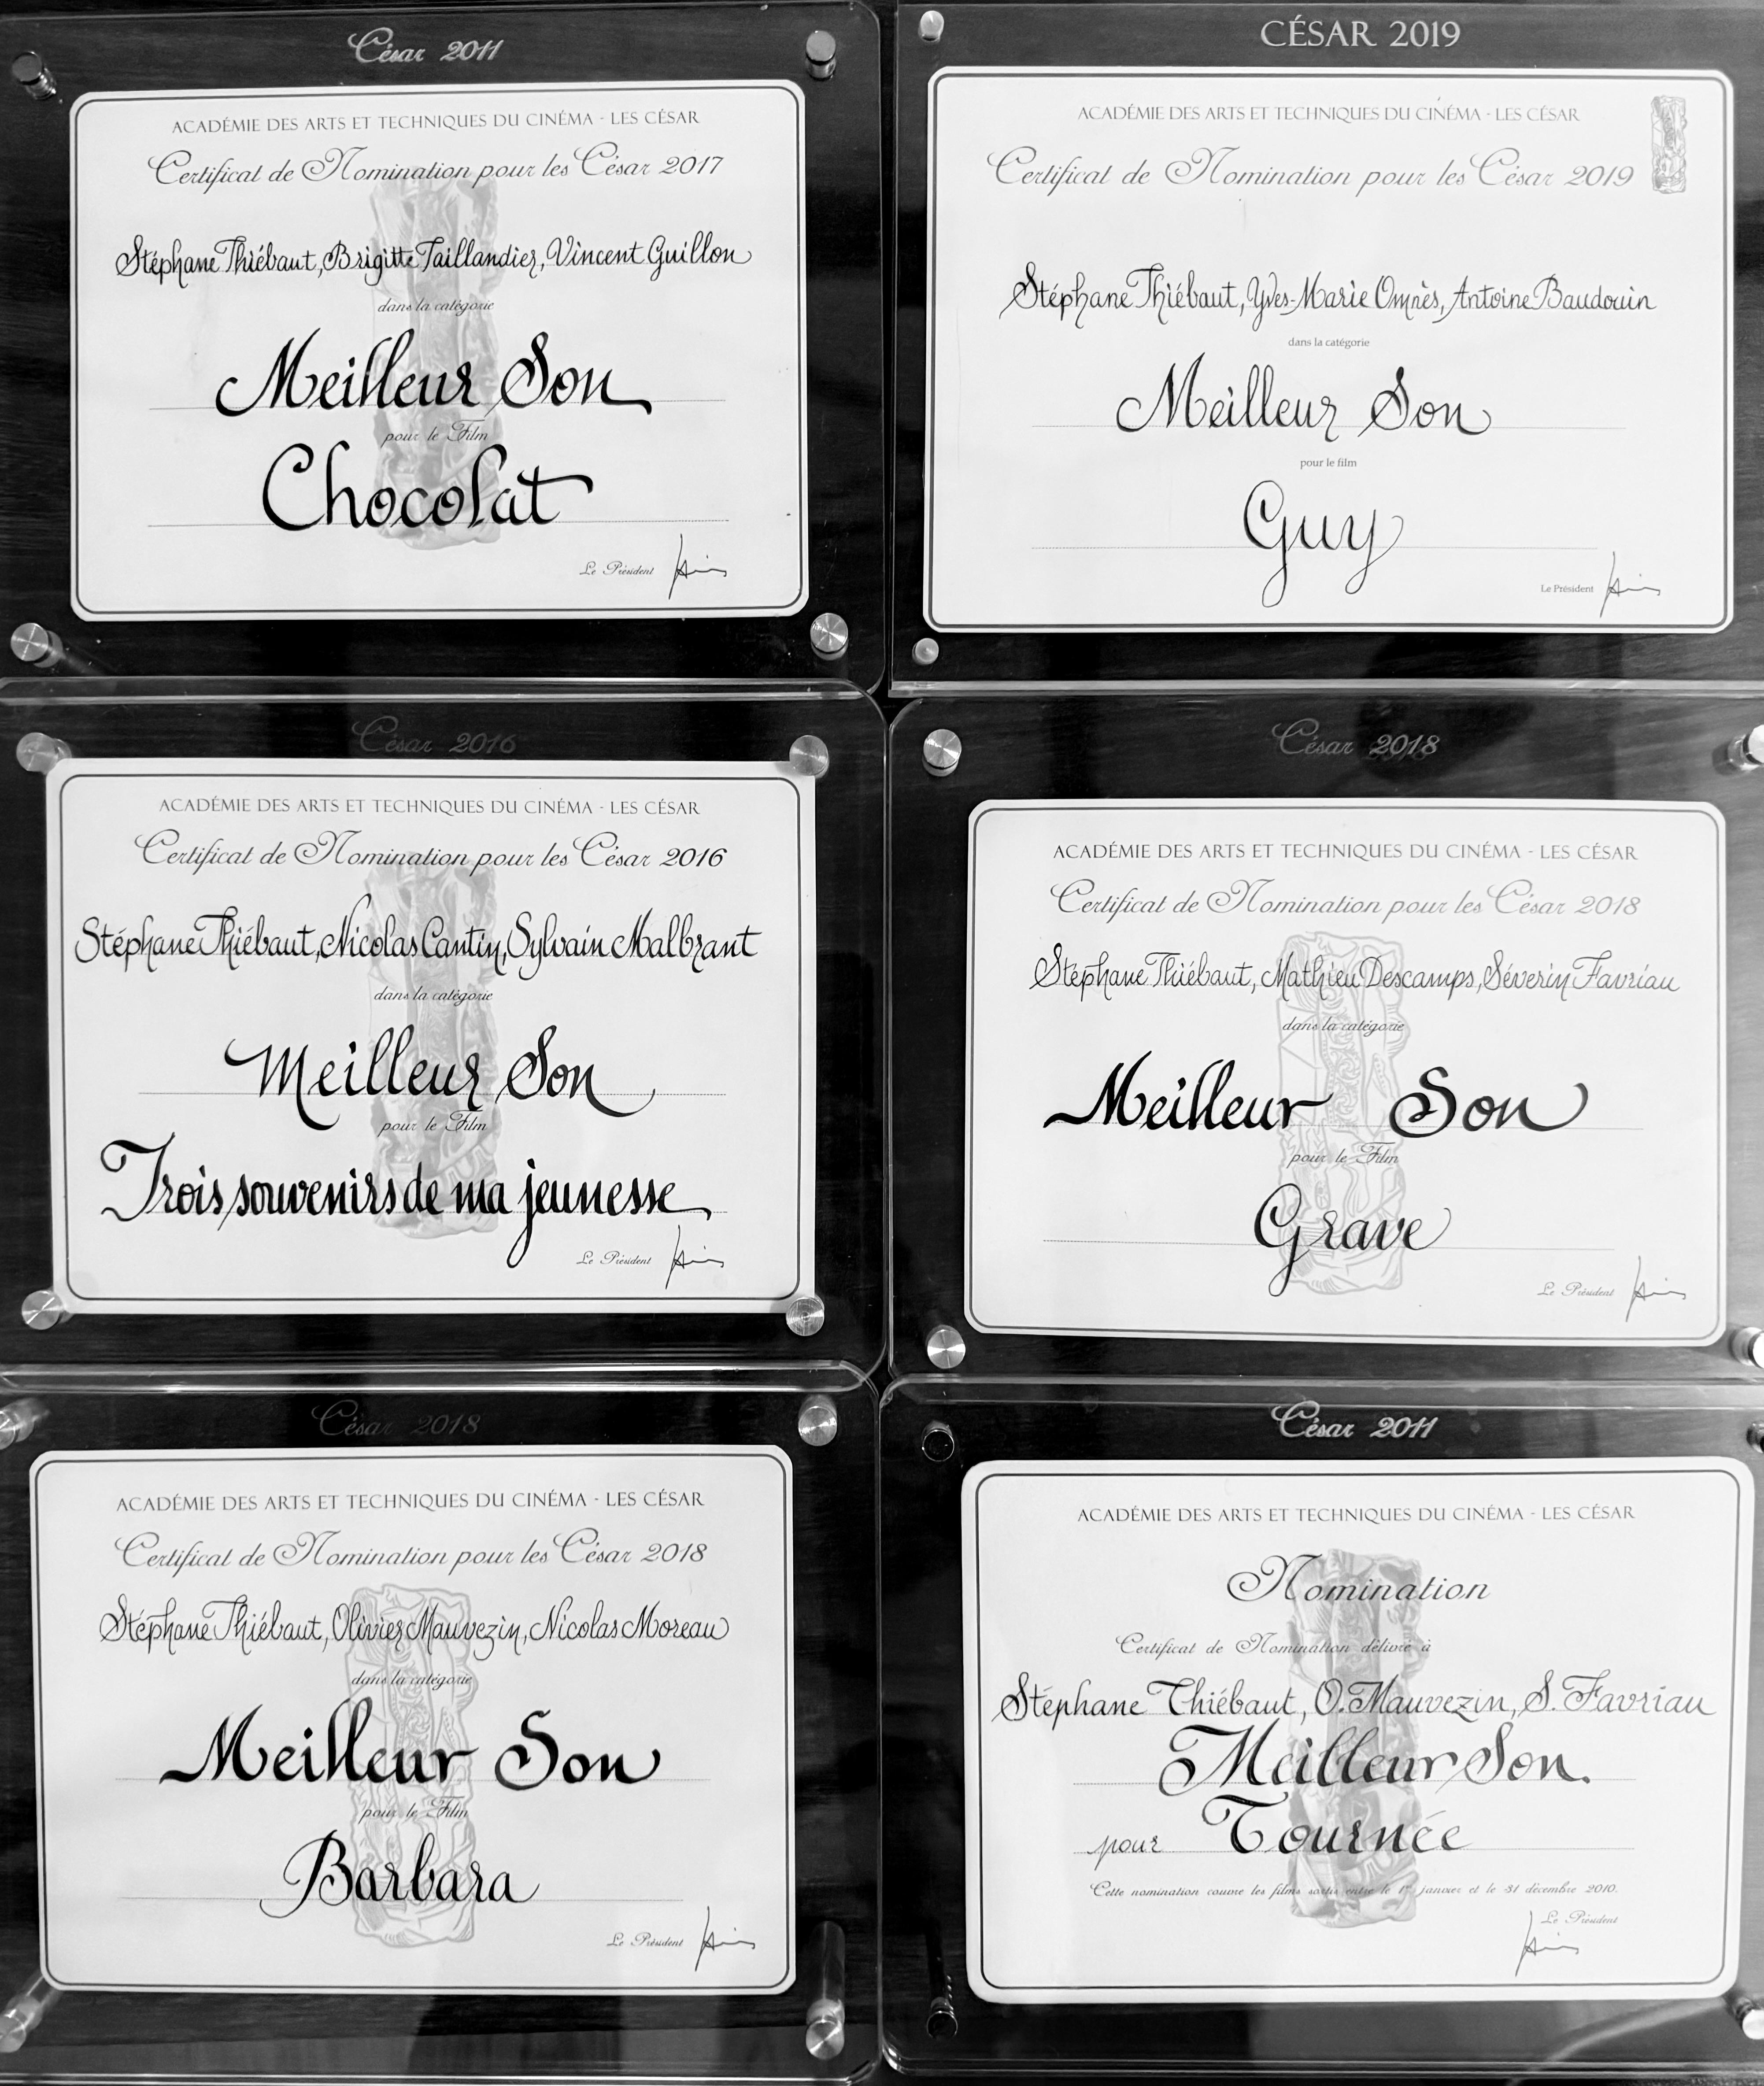 César 2011
ACADÉMIE DES ARTS ET TECHNIQUES DU CINÉMA - LES CÉSAR
Certificat de Nomination pour les César 2017
Stéphane Thiébaut, Brigitte Taillandier, Vincent Guillon
dans la catégorie
Meilleur Son
pour le Film
Chocolat
Le Président
CÉSAR 2019
ACADÉMIE DES ARTS ET TECHNIQUES DU CINÉMA - LES CÉSAR
Certificat de Nomination pour les César 2019
Stéphane Thiébaut, Yves-Marie Omnès, Antoine Baudouin
dans la catégorie
Meilleur Son
pour le film
Guy
Le Président
César 2016
ACADÉMIE DES ARTS ET TECHNIQUES DU CINÉMA - LES CÉSAR
Certificat de Nomination pour les César 2016
Stéphane Thiébaut, Nicolas Cantin, Sylvain Malbrant
dans la catégorie
Meilleur Son
pour le Film
Trois souvenirs de ma jeunesse
Le Président
César 2018
ACADÉMIE DES ARTS ET TECHNIQUES DU CINÉMA - LES CÉSAR
Certificat de Nomination pour les César 2018
Stéphane Thiébaut, Mathieu Descamps, Séverin Favriau
dans la catégorie
Meilleur Son
pour le Film
Grave
Le Président
César 2018
ACADÉMIE DES ARTS ET TECHNIQUES DU CINÉMA - LES CÉSAR
Certificat de Nomination pour les César 2018
Stéphane Thiébaut, Olivier Mauvezin, Nicolas Moreau
dans la catégorie
Meilleur Son
pour le Film
Barbara
Le Président
César 2011
ACADÉMIE DES ARTS ET TECHNIQUES DU CINÉMA - LES CÉSAR
Nomination
Certificat de Nomination délivré à
Stéphane Thiébaut, O. Mauvezin, S. Favriau
Meilleur Son.
pour Tournée
Cette nomination couvre les films sortis entre le 1er janvier et le 31 décembre 2010.
Le Président